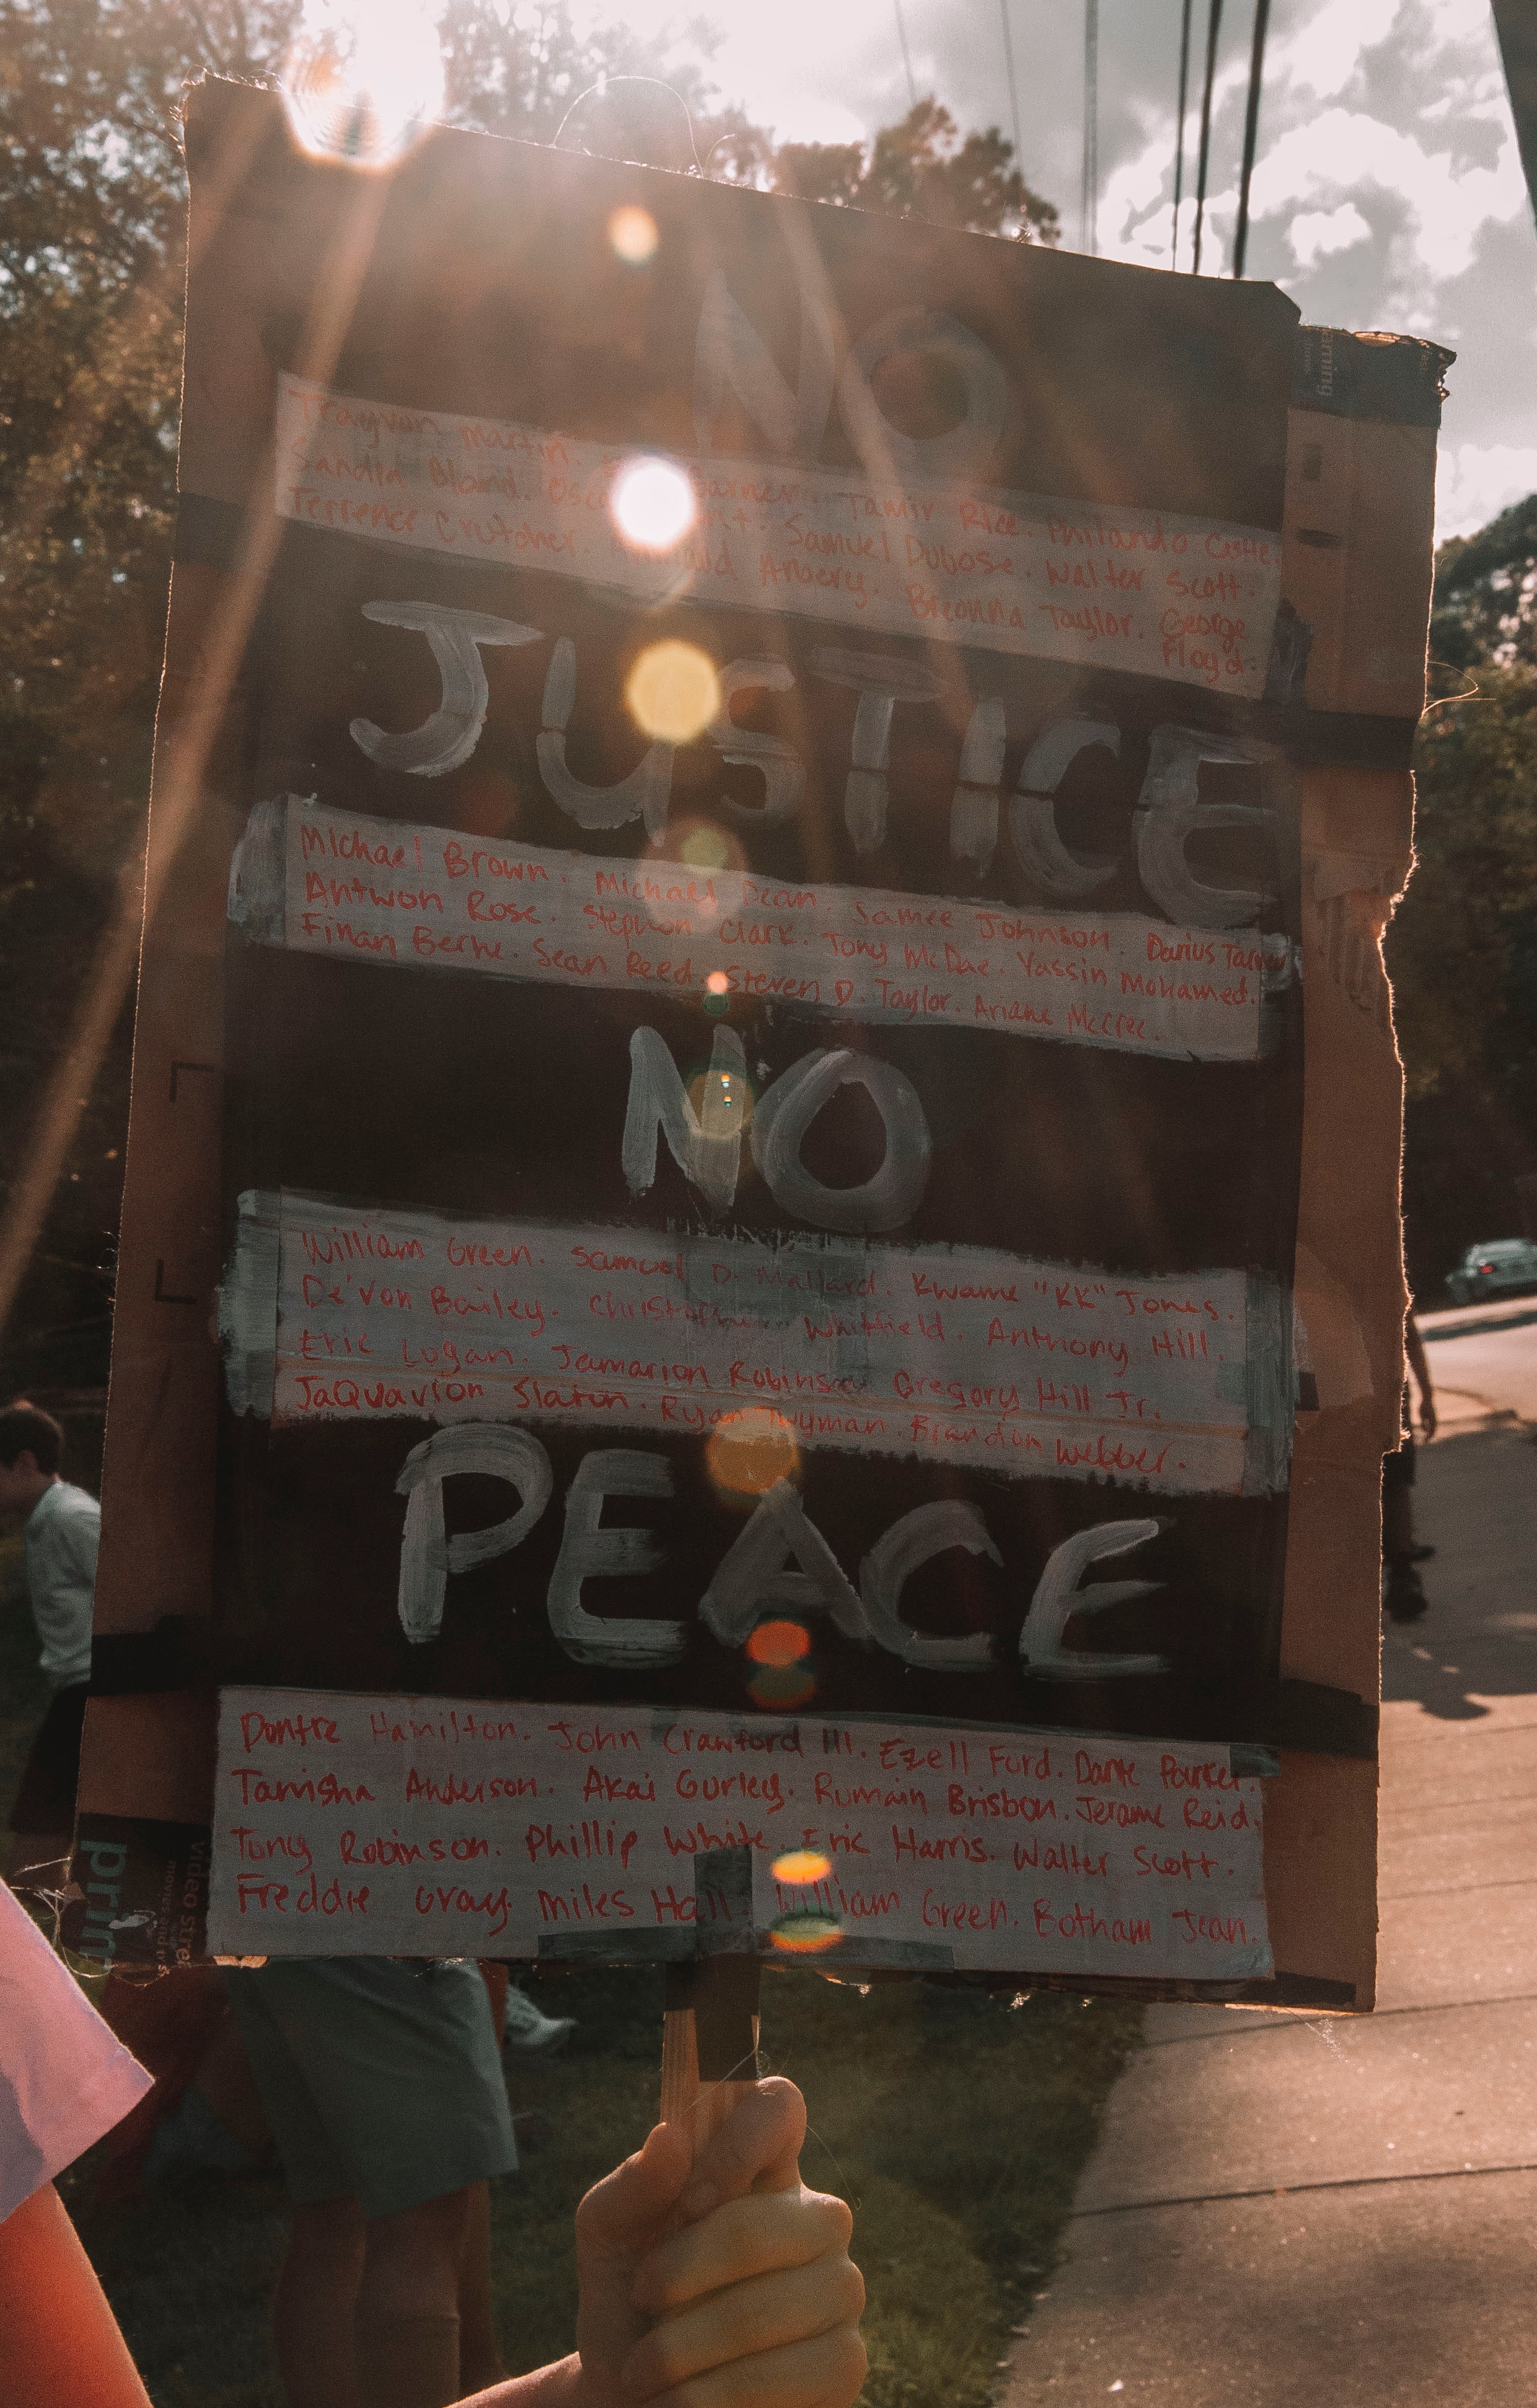 NO
Trayvon Martin. Garner. Tamir Rice. Philando Castile.
Sandra Bland. Samuel Dubose. Walter Scott.
Terrence Crutcher. Arbery. Breonna Taylor. George
Floyd.
JUSTICE
Michael Brown. Michael Dean. Samee Johnson. Darius
Antwon Rose. Stephon Clark. Tony McDae. Yassin Mohamed.
Finan Berhe. Sean Reed. Steven D. Taylor. Ariane McCree.
NO
William Green. Samuel D. Mallard. Kwame "KK" Jones.
De'von Bailey. Whitfield. Anthony Hill.
Eric Logan. Jamarion Robinson. Gregory Hill Jr.
JaQuavion Slaton. Ryan Twyman. Brandon Webber.
PEACE
Dontre Hamilton. John Crawford III. Ezell Ford. Dante Parker.
Tanisha Anderson. Akai Gurley. Rumain Brisbon. Jerame Reid.
Tony Robinson. Phillip White. Eric Harris. Walter Scott.
Freddie Gray. Miles Hall. William Green. Botham Jean.